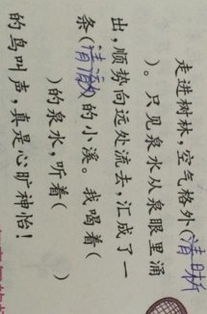 走进树林，空气格外(清晰
)。只见泉水从泉眼里涌
出，顺势向远处流去，汇成了一
条(清澈)的小溪。我喝着(
)的泉水，听着(　　)
的鸟叫声，真是心旷神怡！